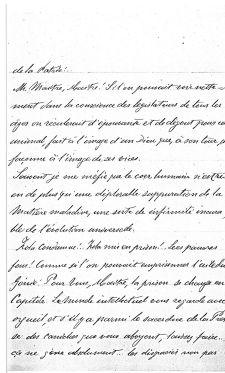 de la Patrie!..
M. Maestre, Maestre! Si l'on pouvait voir nette-
ment dans la conscience des législateurs de tous les
âges on reculerait d'épouvante et de dégoût pour cet
animal fait à l'image d'un Dieu que, à son tour, il
façonne à l'image de ses vices.
Souvent je me méfie que le cœur humain n'est rien
en de plus qu'une déplorable suppuration de la
Matière maladive, une sorte de infirmité incura-
ble de l'évolution universelle.
Zola condamné! Zola mis en prison! Les pauvres
fous! Comme si l'on pouvait emprisonner l'aile du
Génie! Pour vous, Maestre, la prison se change en
Capitole. Le monde intellectuel vous regarde avec
orgueil et s'il y a parmi le sacerdoce de la
se des caniches que vous aboyent, laissez faire..
ça ne gêne absolument... les disparus non pas